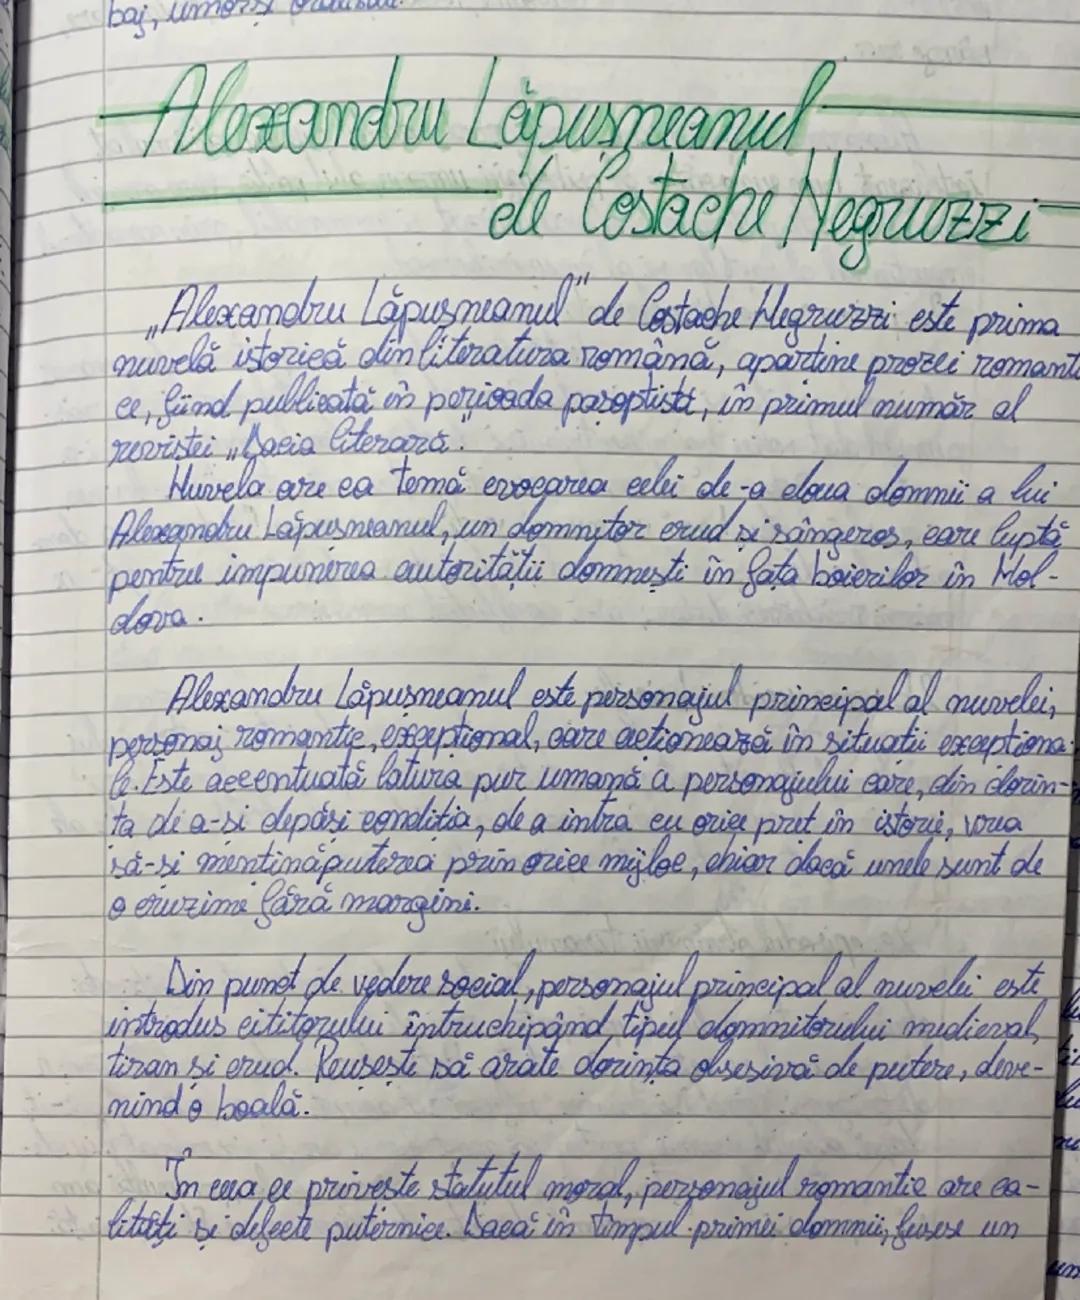 baj, umor și
Alexandru Lăpușneanul
de Costache Negruzzi
„Alexandru Lăpușneanul" de Costache Negruzzi este prima
nuvelă istorică din literatura română, aparține prozei romanti
ce, fiind publicată în perioada pașoptistă, în primul număr al
revistei „Dacia literară".
Nuvela are ca temă evocarea celei de-a doua domnii a lui
Alexandru Lăpușneanul, un domnitor crud și sângeros, care luptă
pentru impunerea autorității domnești în fața boierilor în Mol-
dova.
Alexandru Lăpușneanul este personajul principal al nuvelei,
personaj romantic, excepțional, care acționează în situații excepționa
le. Este accentuată latura pur umană a personajului care, din dorin-
ța de a-și depăși condiția, de a intra cu orice preț în istorie, vrea
să-și mențină puterea prin orice mijloc, chiar dacă unele sunt de
o cruzime fără margini.
Din punct de vedere social, personajul principal al nuvelei este
introdus cititorului întruchipând tipul domnitorului medieval,
tiran și crud. Reușește să arate dorința obsesivă de putere, deve-
nind o boală.
În ceea ce privește statutul moral, personajul romantic are ca-
lități și defecte puternice. Dacă în timpul primei domnii, fusese un